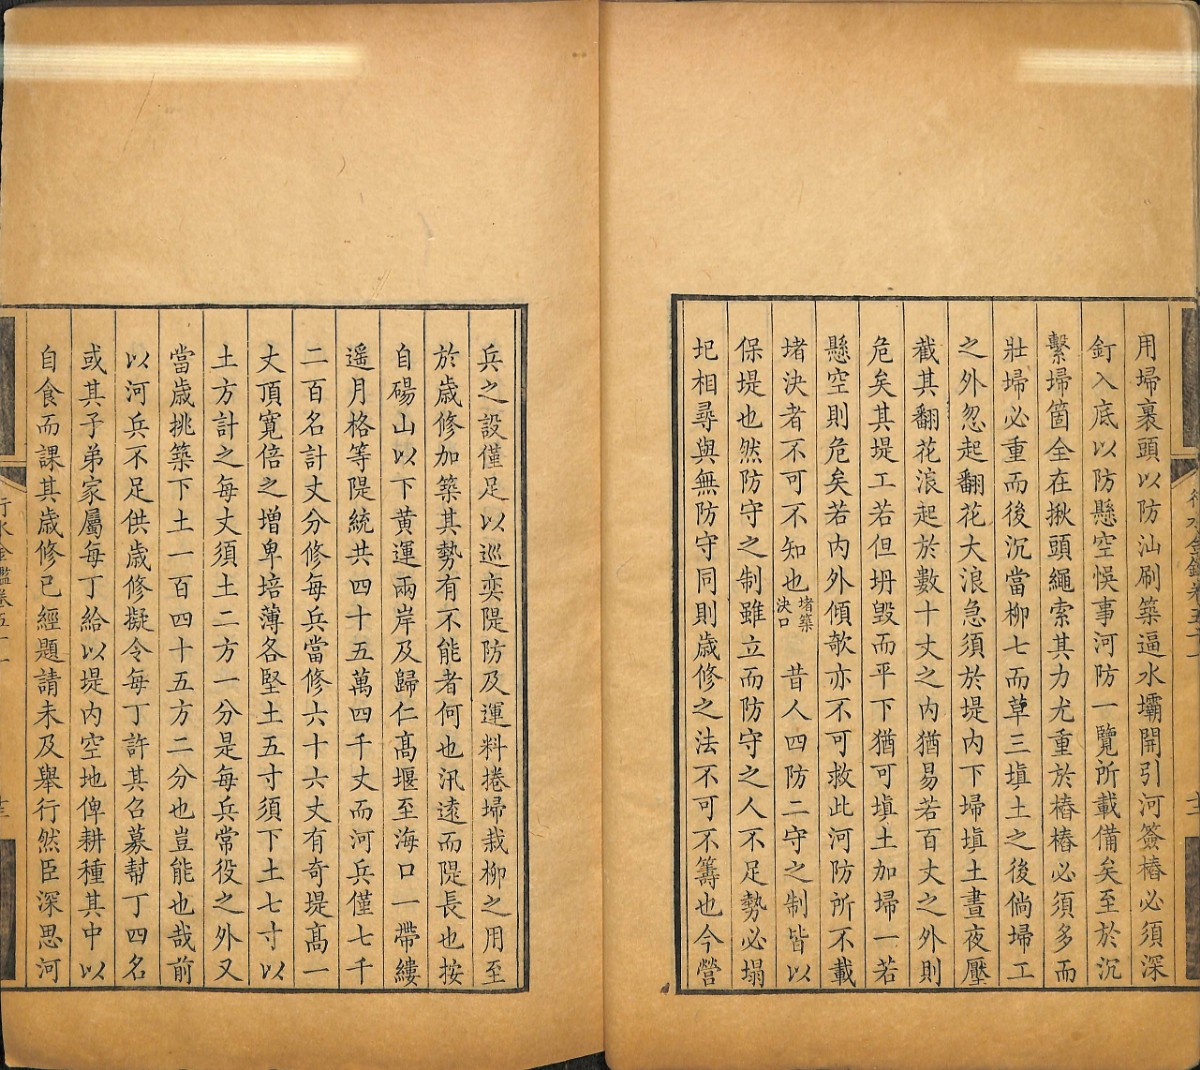 用埽裹頭以防汕刷築逼水壩開引河簽樁必須深
釘入底以防懸空悞事河防一覽所載備矣至於沉
繫埽箇全在揪頭繩索其力尤重於樁樁必須多而
壯埽必重而後沉當柳七而草三塡土之後倘埽工
之外忽起翻花大浪急須於堤內下埽塡土晝夜壓
截其翻花浪起於數十丈之內猶易若百丈之外則
危矣其堤工若但坍毀而平下猶可塡土加埽一若
懸空則危矣若內外傾欹亦不可救此河防所不載
堵決者不可不知也堵築決口 昔人四防二守之制皆以
保堤也然防守之制雖立而防守之人不足勢必塌
圯相尋與無防守同則歲修之法不可不籌也今營
兵之設僅足以巡奕隄防及運料捲埽栽柳之用至
於歲修加築其勢有不能者何也汛遠而隄長也按
自碭山以下黄運兩岸及歸仁髙堰至海口一帶縷
遥月格等隄統共四十五萬四千丈而河兵僅七千
二百名計丈分修每兵當修六十六丈有奇堤髙一
丈頂寛倍之增卑培薄各堅土五寸須下土七寸以
土方計之每丈須土二方一分是每兵常役之外又
當歲挑築下土一百四十五方二分也豈能也哉前
以河兵不足供歲修擬令每丁許其召募幇丁四名
或其子弟家屬每丁給以堤內空地俾耕種其中以
自食而課其歲修已經題請未及舉行然臣深思河